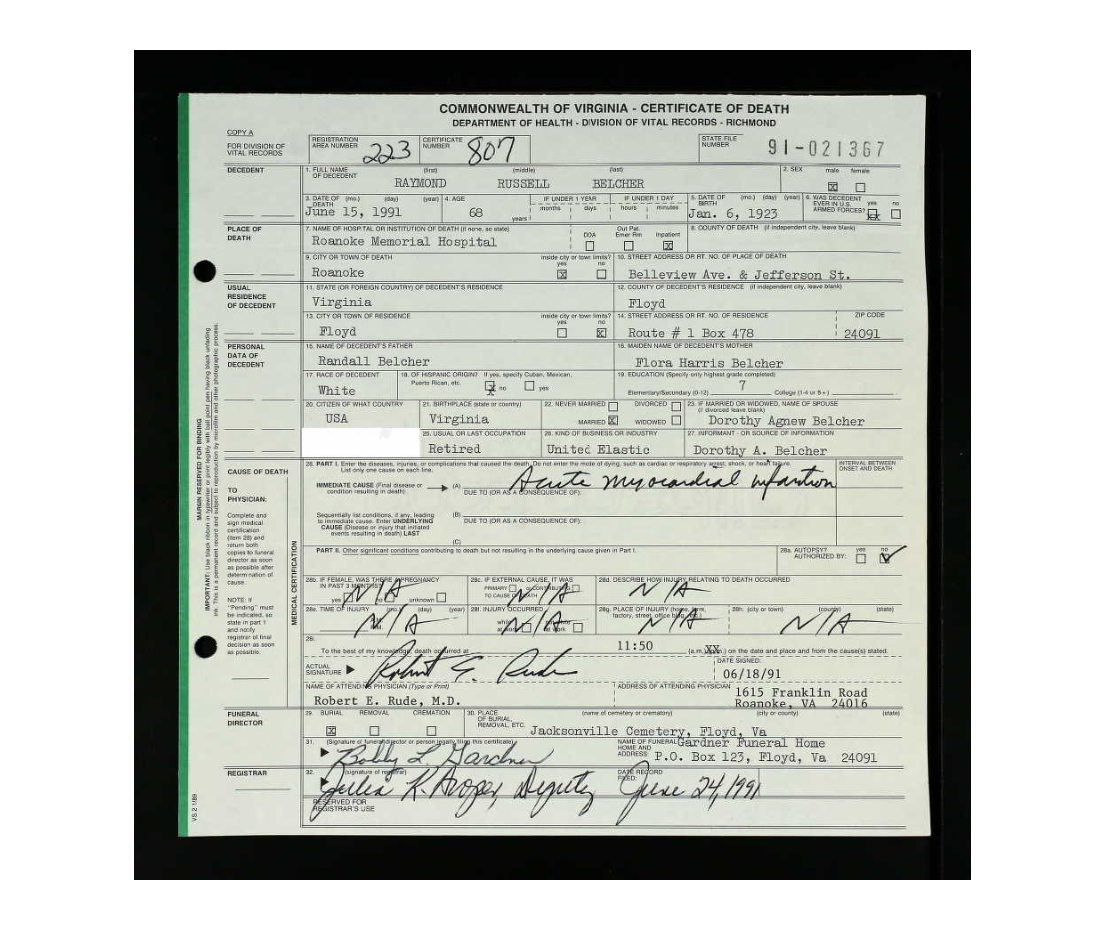 COMMONWEALTH OF VIRGINIA - CERTIFICATE OF DEATH
DEPARTMENT OF HEALTH - DIVISION OF VITAL RECORDS - RICHMOND
COPY A
FOR DIVISION OF VITAL RECORDS
REGISTRATION AREA NUMBER 223 CERTIFICATE NUMBER 807 STATE FILE NUMBER 91-021367
DECEDENT
1. FULL NAME OF DECEDENT (first) (middle) (last) 2. SEX male female
RAYMOND RUSSELL BELCHER ☒ ☐
3. DATE OF DEATH (mo.) (day) (year) 4. AGE IF UNDER 1 YEAR IF UNDER 1 DAY 5. DATE OF BIRTH (mo.) (day) (year) 6. WAS DECEDENT EVER IN U.S. ARMED FORCES? yes no
June 15, 1991 68 years months days hours minutes Jan. 6, 1923 XX
PLACE OF DEATH
7. NAME OF HOSPITAL OR INSTITUTION OF DEATH (if none, so state) DOA Out Pat. Emer Rm Inpatient 8. COUNTY OF DEATH (if independent city, leave blank)
Roanoke Memorial Hospital ☐ ☐ ☒
9. CITY OR TOWN OF DEATH inside city or town limits? yes no 10. STREET ADDRESS OR RT. NO. OF PLACE OF DEATH
Roanoke ☒ ☐ Belleview Ave. & Jefferson St.
USUAL RESIDENCE OF DECEDENT
11. STATE (OR FOREIGN COUNTRY) OF DECEDENT'S RESIDENCE 12. COUNTY OF DECEDENT'S RESIDENCE (if independent city, leave blank)
Virginia Floyd
13. CITY OR TOWN OF RESIDENCE inside city or town limits? yes no 14. STREET ADDRESS OR RT. NO. OF RESIDENCE ZIP CODE
Floyd ☐ ☒ Route # 1 Box 478 24091
PERSONAL DATA OF DECEDENT
15. NAME OF DECEDENT'S FATHER 16. MAIDEN NAME OF DECEDENT'S MOTHER
Randall Belcher Flora Harris Belcher
17. RACE OF DECEDENT 18. OF HISPANIC ORIGIN? If yes, specify Cuban, Mexican, Puerto Rican, etc. no yes 19. EDUCATION (Specify only highest grade completed)
White 7 Elementary/Secondary (0-12) College (1-4 or 5+)
20. CITIZEN OF WHAT COUNTRY 21. BIRTHPLACE (state or country) 22. NEVER MARRIED DIVORCED MARRIED WIDOWED 23. IF MARRIED OR WIDOWED, NAME OF SPOUSE (if divorced leave blank)
USA Virginia Dorothy Agnew Belcher
25. USUAL OR LAST OCCUPATION 26. KIND OF BUSINESS OR INDUSTRY 27. INFORMANT - OR SOURCE OF INFORMATION
Retired United Elastic Dorothy A. Belcher
CAUSE OF DEATH
28. PART I. Enter the diseases, injuries, or complications that caused the death. Do not enter the mode of dying, such as cardiac or respiratory arrest, shock, or heart failure. List only one cause on each line. INTERVAL BETWEEN ONSET AND DEATH
IMMEDIATE CAUSE (Final disease or condition resulting in death): (A) Acute myocardial infarction
DUE TO (OR AS A CONSEQUENCE OF):
Sequentially list conditions, if any, leading to immediate cause. Enter UNDERLYING CAUSE (Disease or injury that initiated events resulting in death) LAST
(B)
DUE TO (OR AS A CONSEQUENCE OF):
(C)
TO PHYSICIAN:
Complete and sign medical certification (item 28) and return both copies to funeral director as soon as possible after determination of cause.
NOTE: If "Pending" must be indicated, so state in part 1 and notify registrar of final decision as soon as possible.
MEDICAL CERTIFICATION
PART II. Other significant conditions contributing to death but not resulting in the underlying cause given in Part I. 28a. AUTOPSY? AUTHORIZED BY: yes no
28b. IF FEMALE, WAS THERE A PREGNANCY IN PAST 3 MONTHS? yes no unknown N/A 28c. IF EXTERNAL CAUSE, IT WAS PRIMARY OR CONTRIBUTING TO CAUSE OF DEATH N/A 28d. DESCRIBE HOW INJURY RELATING TO DEATH OCCURRED N/A
28e. TIME OF INJURY (mo.) (day) (year) N/A 28f. INJURY OCCURRED N/A 28g. PLACE OF INJURY (home, farm, factory, street, office bldg. N/A 28h. (city or town) (county) (state) N/A
28i. To the best of my knowledge, death occurred at 11:50 (a.m. XX) on the date and place and from the cause(s) stated.
ACTUAL SIGNATURE Robert E. Rude DATE SIGNED: 06/18/91
NAME OF ATTENDING PHYSICIAN (Type or Print) ADDRESS OF ATTENDING PHYSICIAN 1615 Franklin Road
Robert E. Rude, M.D. Roanoke, VA 24016
FUNERAL DIRECTOR
29. BURIAL REMOVAL CREMATION 30. PLACE OF BURIAL, REMOVAL, ETC. (name of cemetery or crematory) (city or county) (state)
☒ ☐ ☐ Jacksonville Cemetery, Floyd, Va
31. (Signature of funeral director or person legally filing this certificate) NAME OF FUNERAL HOME AND ADDRESS: Gardner Funeral Home
Bobby L. Gardner P.O. Box 123, Floyd, Va 24091
REGISTRAR
32. (signature of registrar) DATE RECORD FILED:
Julia K. Deputy June 24, 1991
RESERVED FOR REGISTRAR'S USE
MARGIN RESERVED FOR BINDING
IMPORTANT: Use black ribbon in typewriter or print legibly with ball point pen having black unfading ink. This is a permanent record and subject to reproduction by microfilm and other photographic process.
VS 2 1/89